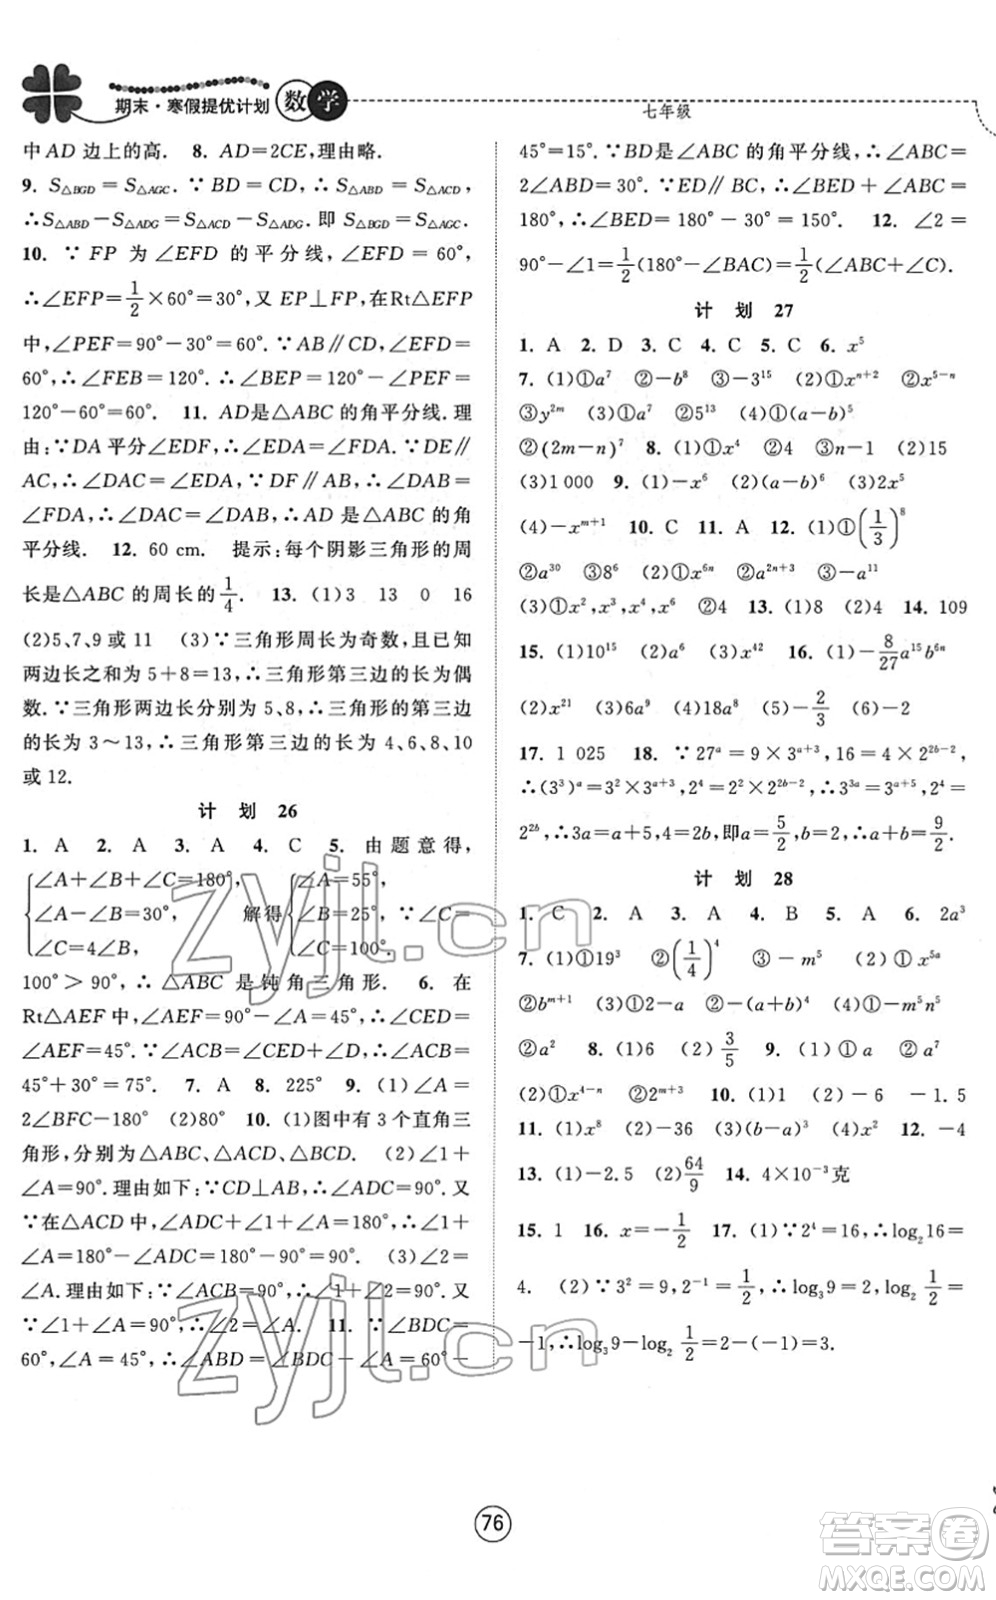 期末·寒假提优计划 数学 七年级
中AD边上的高. 8. AD=2CE,理由略.
9. S△BGD=S△AGC. ∵BD=CD,∴S△ABD=S△ACD,
∴S△ABD－S△ADG=S△ACD－S△ADG. 即S△BGD=S△AGC.
10. ∵FP为∠EFD的平分线,∠EFD=60°,
∴∠EFP=1/2×60°=30°,又EP⊥FP,在Rt△EFP
中,∠PEF=90°－30°=60°.∵AB∥CD,∠EFD=
60°,∴∠FEB=120°.∴∠BEP=∠BEF－∠PEF=
120°－60°=60°. 11. AD是△ABC的角平分线.理
由:∵DA平分∠EDF,∴∠EDA=∠FDA.∵DE∥
AC,∴∠DAC=∠EDA,∵DF∥AB,∴∠DAB=
∠FDA,∴∠DAC=∠DAB.∴AD是△ABC的角
平分线. 12. 60 cm. 提示:每个阴影三角形的周
长是△ABC的周长的1/4. 13. (1)3 13 0 16
(2)5、7、9或11 (3)∵三角形周长为奇数,且已知
两边长之和为5+8=13,∴三角形第三边的长为偶
数.∵三角形两边长分别为5、8,∴三角形的第三边
的长为3～13,∴三角形第三边的长为4、6、8、10
或12.
计 划 26
1. A 2. A 3. A 4. C 5. 由题意得,
{∠A+∠B+∠C=180°, {∠A=55°,
∠A－∠B=30°, 解得 ∠B=25°, ∵∠C=
∠C=4∠B, ∠C=100°.
100°＞90°,∴△ABC是钝角三角形. 6. 在
Rt△AEF中,∠AEF=90°－∠A=45°,∴∠CED=
∠AEF=45°.∵∠ACB=∠CED+∠D,∴∠ACB=
45°+30°=75°. 7. A 8. 225° 9. (1)∠A=
2∠BFC－180° (2)80° 10. (1)图中有3个直角三
角形,分别为△ABC、△ACD、△BCD. (2)∠1+
∠A=90°.理由如下:∵CD⊥AB,∴∠ADC=90°.又
∵在△ACD中,∠ADC+∠1+∠A=180°,∴∠1+
∠A=180°－∠ADC=180°－90°=90°. (3)∠2=
∠A.理由如下:∵∠ACB=90°,∴∠1+∠2=90°.又
∵∠1+∠A=90°,∴∠2=∠A. 11. ∵∠BDC=
60°,∠A=45°,∴∠ABD=∠BDC－∠A=60°－
45°=15°.∵BD是∠ABC的角平分线,∴∠ABC=
2∠ABD=30°.∵ED∥BC,∴∠BED+∠ABC=
180°,∴∠BED=180°－30°=150°. 12. ∠2=
90°－∠1=1/2(180°－∠BAC)=1/2(∠ABC+∠C).
计 划 27
1. A 2. D 3. C 4. C 5. C 6. x⁵
7. (1)①a⁷ ②－b⁸ ③－3¹⁵ (2)①xⁿ⁺² ②x⁵⁻ⁿ
③y²ᵐ (3)①a⁷ ②5¹³ (4)①(a－b)⁵
②(2m－n)⁷ 8. (1)①x⁴ ②4 ③n－1 (2)15
(3)1 000 9. (1)－x⁶ (2)(a－b)⁶ (3)2x⁵
(4)－xᵐ⁺¹ 10. C 11. A 12. (1)①(1/3)⁸
②a³⁰ ③8⁶ (2)①x⁶ⁿ ②a²ⁿ⁺³ ③－a¹¹
(3)①x²,x³,x⁴,x⁶ ②4 13. (1)8 (2)4 14. 109
15. (1)10¹⁵ (2)a⁶ (3)x⁴² 16. (1)－8/27a¹⁵b⁶ⁿ
(2)x²¹ (3)6a⁹ (4)18a⁸ (5)－2/3 (6)－2
17. 1 025 18. ∵27ᵃ=9×3ᵃ⁺³,16=4×2²ᵇ⁻²,
∴(3³)ᵃ=3²×3ᵃ⁺³,2⁴=2²×2²ᵇ⁻²,∴3³ᵃ=3ᵃ⁺⁵,2⁴=
2²ᵇ,∴3a=a+5,4=2b,即a=5/2,b=2,∴a+b=9/2.
计 划 28
1. C 2. A 3. A 4. B 5. A 6. 2a³
7. (1)①19³ ②(1/4)⁴ ③－m⁵ (2)①x⁵ᵃ
②bᵐ⁺¹ (3)①2－a ②－(a+b) (4)①－m⁵n⁵
②a² 8. (1)6 (2)3/5 9. (1)①a ②a⁷
(2)①x⁴⁻ⁿ ②x²ᵐ⁺³ 10. (1)1 (2)－6 (3)－1.5
11. (1)x⁸ (2)－36 (3)(b－a)³ (4)x² 12. －4
13. (1)－2.5 (2)64/9 14. 4×10⁻³克
15. 1 16. x=－1/2 17. (1)∵2⁴=16,∴log₂16=
4. (2)∵3²=9,2⁻¹=1/2,∴log₃9=2,log₂1/2=
－1,∴log₃9－log₂1/2=2－(－1)=3.
76
zyjl.cn
zyjl.cn
答案圈
MXQE.COM